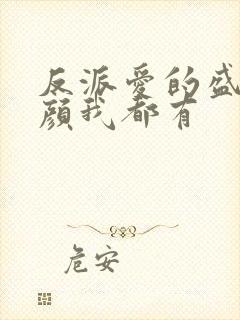 反派爱的盛
颜我都有
危安